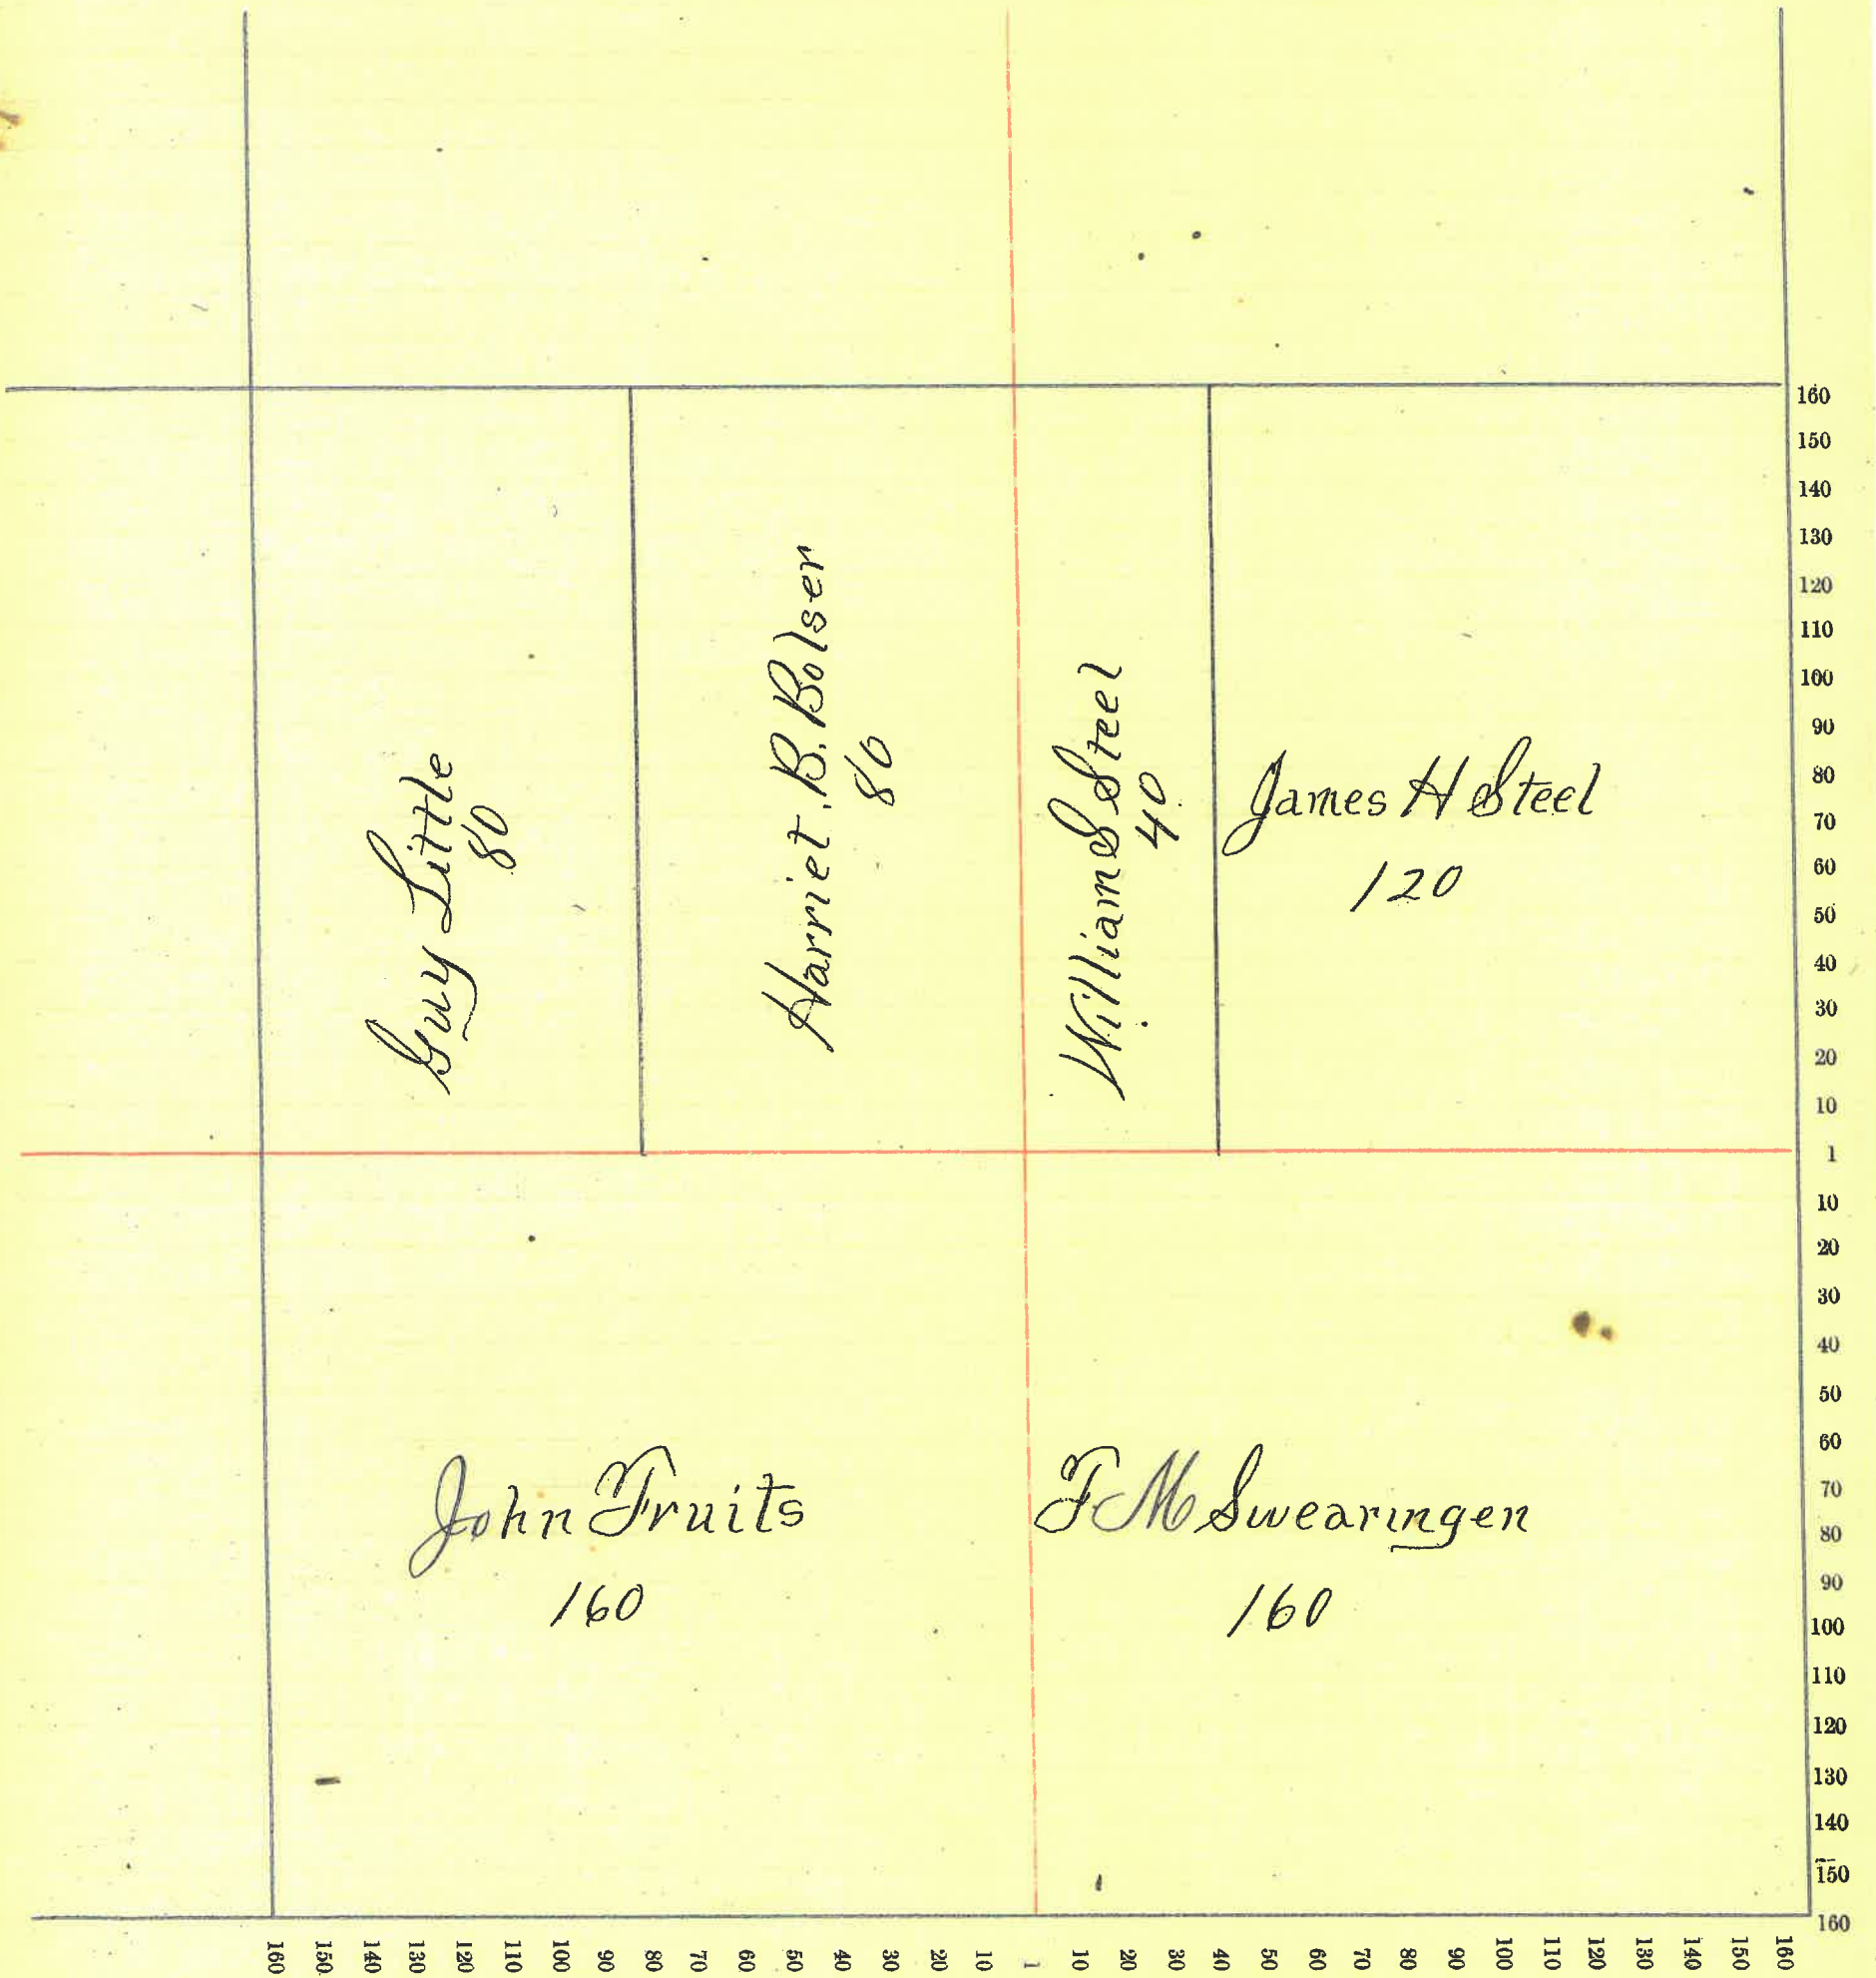 Guy Little
80
Harriet. B. Bolser
80
William S Steel
40
James H Steel
120
John Fruits
160
F M Swearingen
160
160
150
140
130
120
110
100
90
80
70
60
50
40
30
20
10
1
10
20
30
40
50
60
70
80
90
100
110
120
130
140
150
160
160 150 140 130 120 110 100 90 80 70 60 50 40 30 20 10 1 10 20 30 40 50 60 70 80 90 100 110 120 130 140 150 160